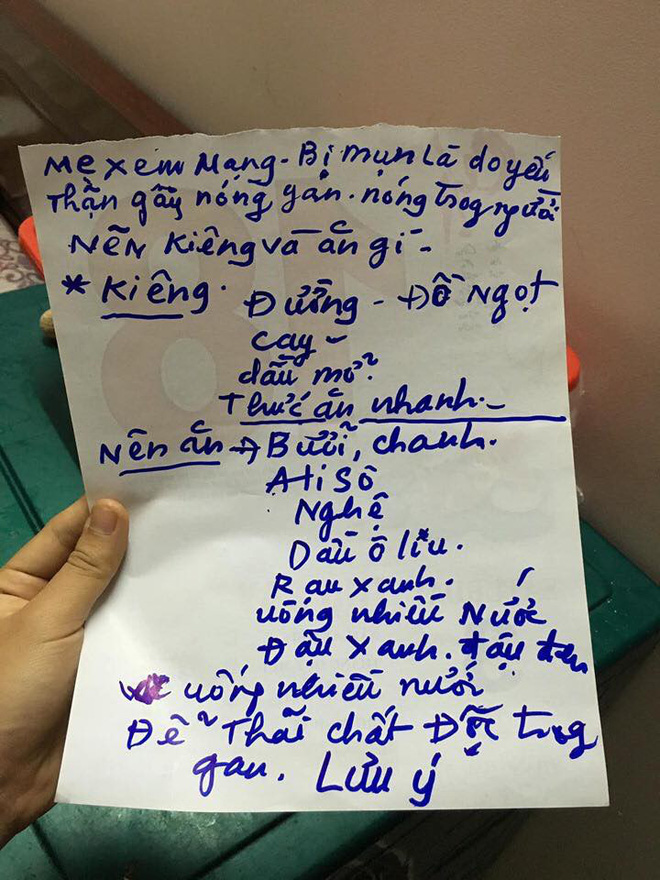 Mẹ xem Mạng - Bị mụn là do yếu
thận gây nóng gan. nóng trog người
Nên Kiêng và ăn gì -
* Kiêng. Đường - Đồ Ngọt
Cay -
dầu mở.
Thức ăn nhanh. -
Nên ăn → Bưởi, chanh.
Atisô
Nghệ
Dầu ô liu.
Rau xanh.
uống nhiều Nước
Đậu xanh. đậu đen
uống nhiều nước
Để Thải chất Độc trog
gan. Lưu ý